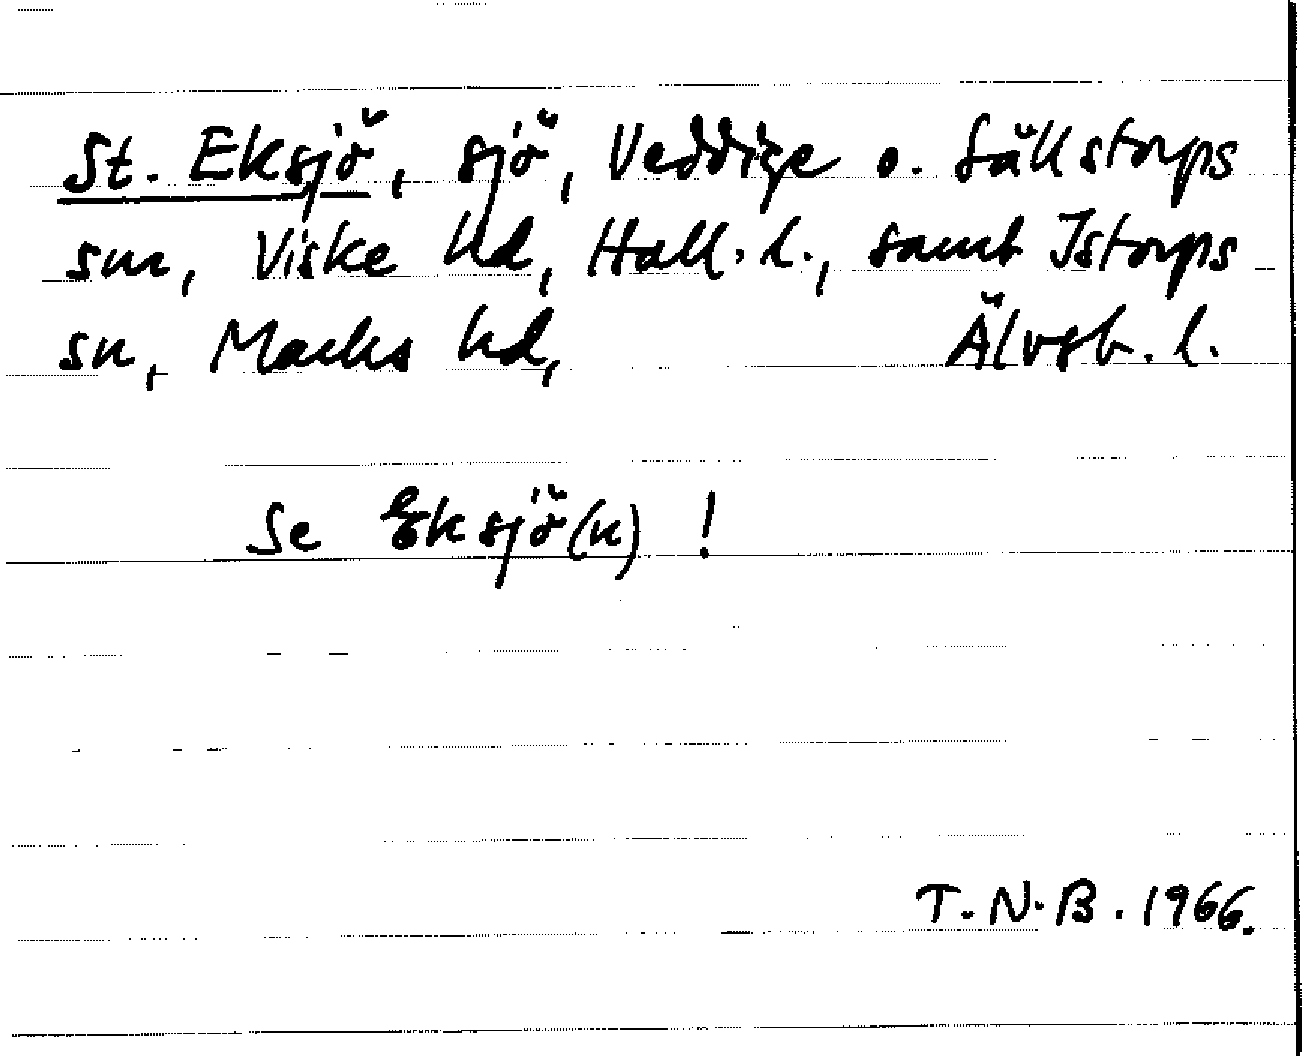 St. Eksjö, sjö, Veddige o. Sällstorps
snr, Viske hd, Hall. l., samt Istorps
sn, Marks hd, Älvsb. l.
Se Eksjö(n) !
T. N. B. 1966.